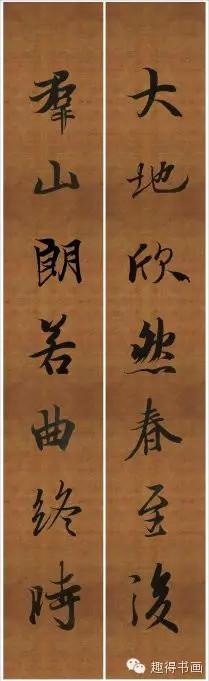 大地欣然春至後
羣山朗若曲終時
趣得书画